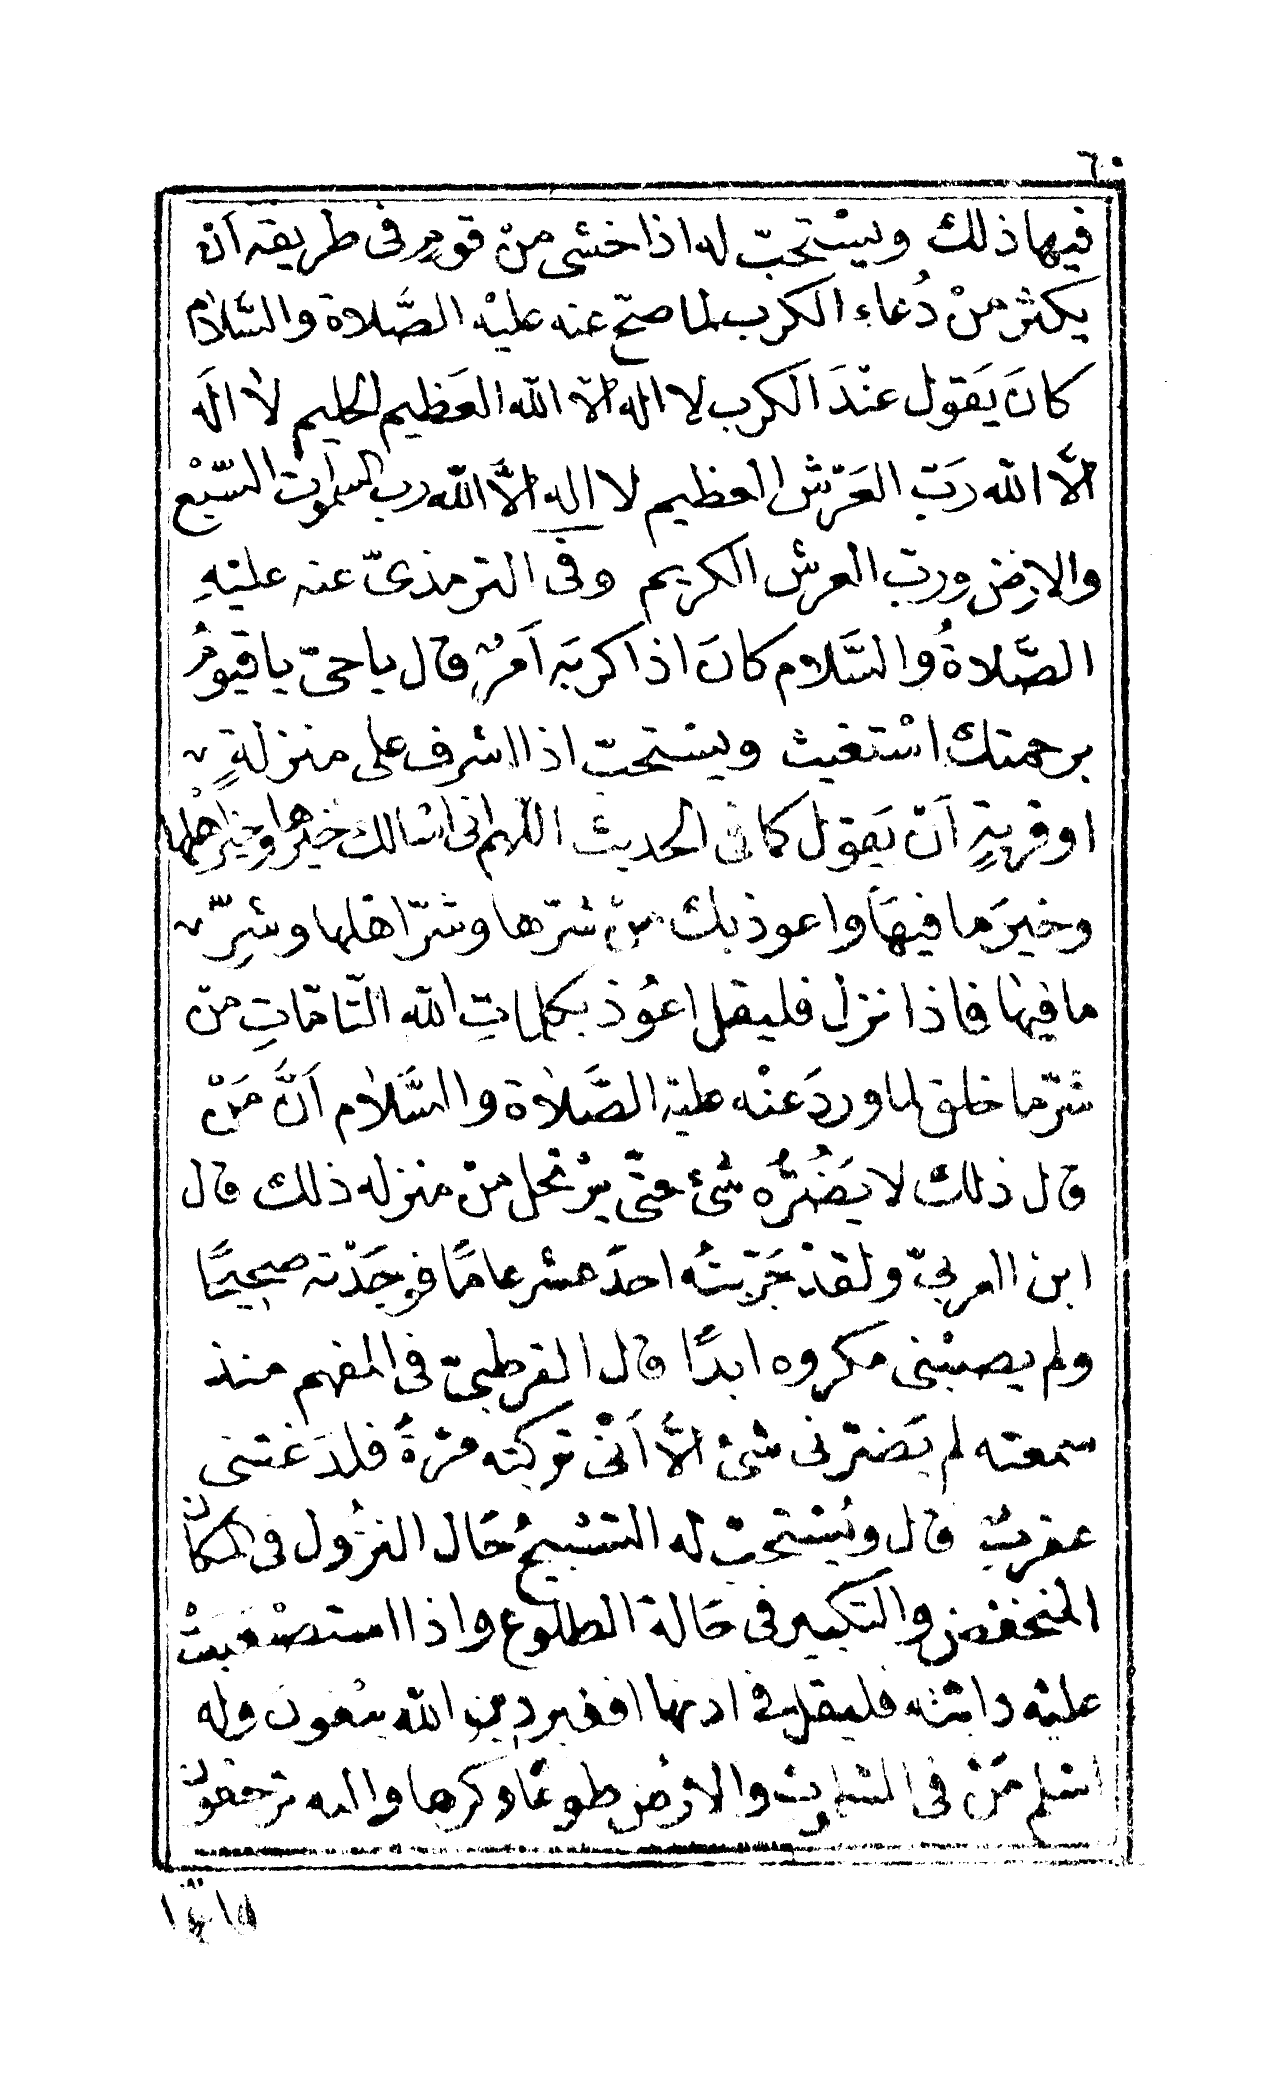 ٦٠
فيها ذلك ويستحبّ له اذا خشى منْ قومٍ فى طريقه اَنْ
يكثر منْ دُعاء الكرب لما صحّ عنه عليْه الصَّلاة والسَّلام
كانَ يَقول عنْدَ الكرب لا اله الّا الله العَظيم الحليم لا الَه
الَّا الله رَبّ العَرْش العظيم لا اله الَّا الله رب السموات السّبْع
والارض وربّ العرش الكريم وفى الترمذىّ عنه عليْهِ
الصَّلاةُ والسَّلام كانَ اذا كربَه اَمْرٌ قال يا حىّ يا قيومُ
برحمتك اسْتغيث ويستحبّ اذا اشرف على منزلةٍ
او قريةٍ اَنْ يَقول كما فى الحديث اللّهم انى اسْالك خيْرها وخيْر اهْلها
وخيرَ ما فيهَا واعوذ بك منْ شرّها وشرّ اهلها وشرِّ
ما فيها فاذا نزل فليقل اعُوذ بكلماتِ الله التّامّاتِ منْ
شرّ ما خلق لما وردَ عنْه عليْه الصَّلاة والسَّلام اَنَّ مَنْ
قال ذلك لا يَضُرُّه شئ حتّى يرْتحل منْ منزله ذلك قال
ابن العربىّ ولقدْ جَرّبْتُه احدَ عشر عامًا فوجَدْته صحيحًا
ولم يصبْنى مكروه ابدًا قال القرطبىّ فى المفهم منذ
سمعته لم يَضرّنى شئ الَّا اَنّى تركته مرّةً فلدَغتنى
عقربٌ قال ويُسْتحبّ له التسْبيحُ حَال النزُول فى المكان
المنخفض والتكبير فى حَالة الطلوع واذا استصْعبتْ
عليْه دابّته فليقل فى اذنها افغير دين الله يبْغونَ وله
اسْلم مَنْ فى السّموات والارْض طوعًا وكرها واليه ترجعُون